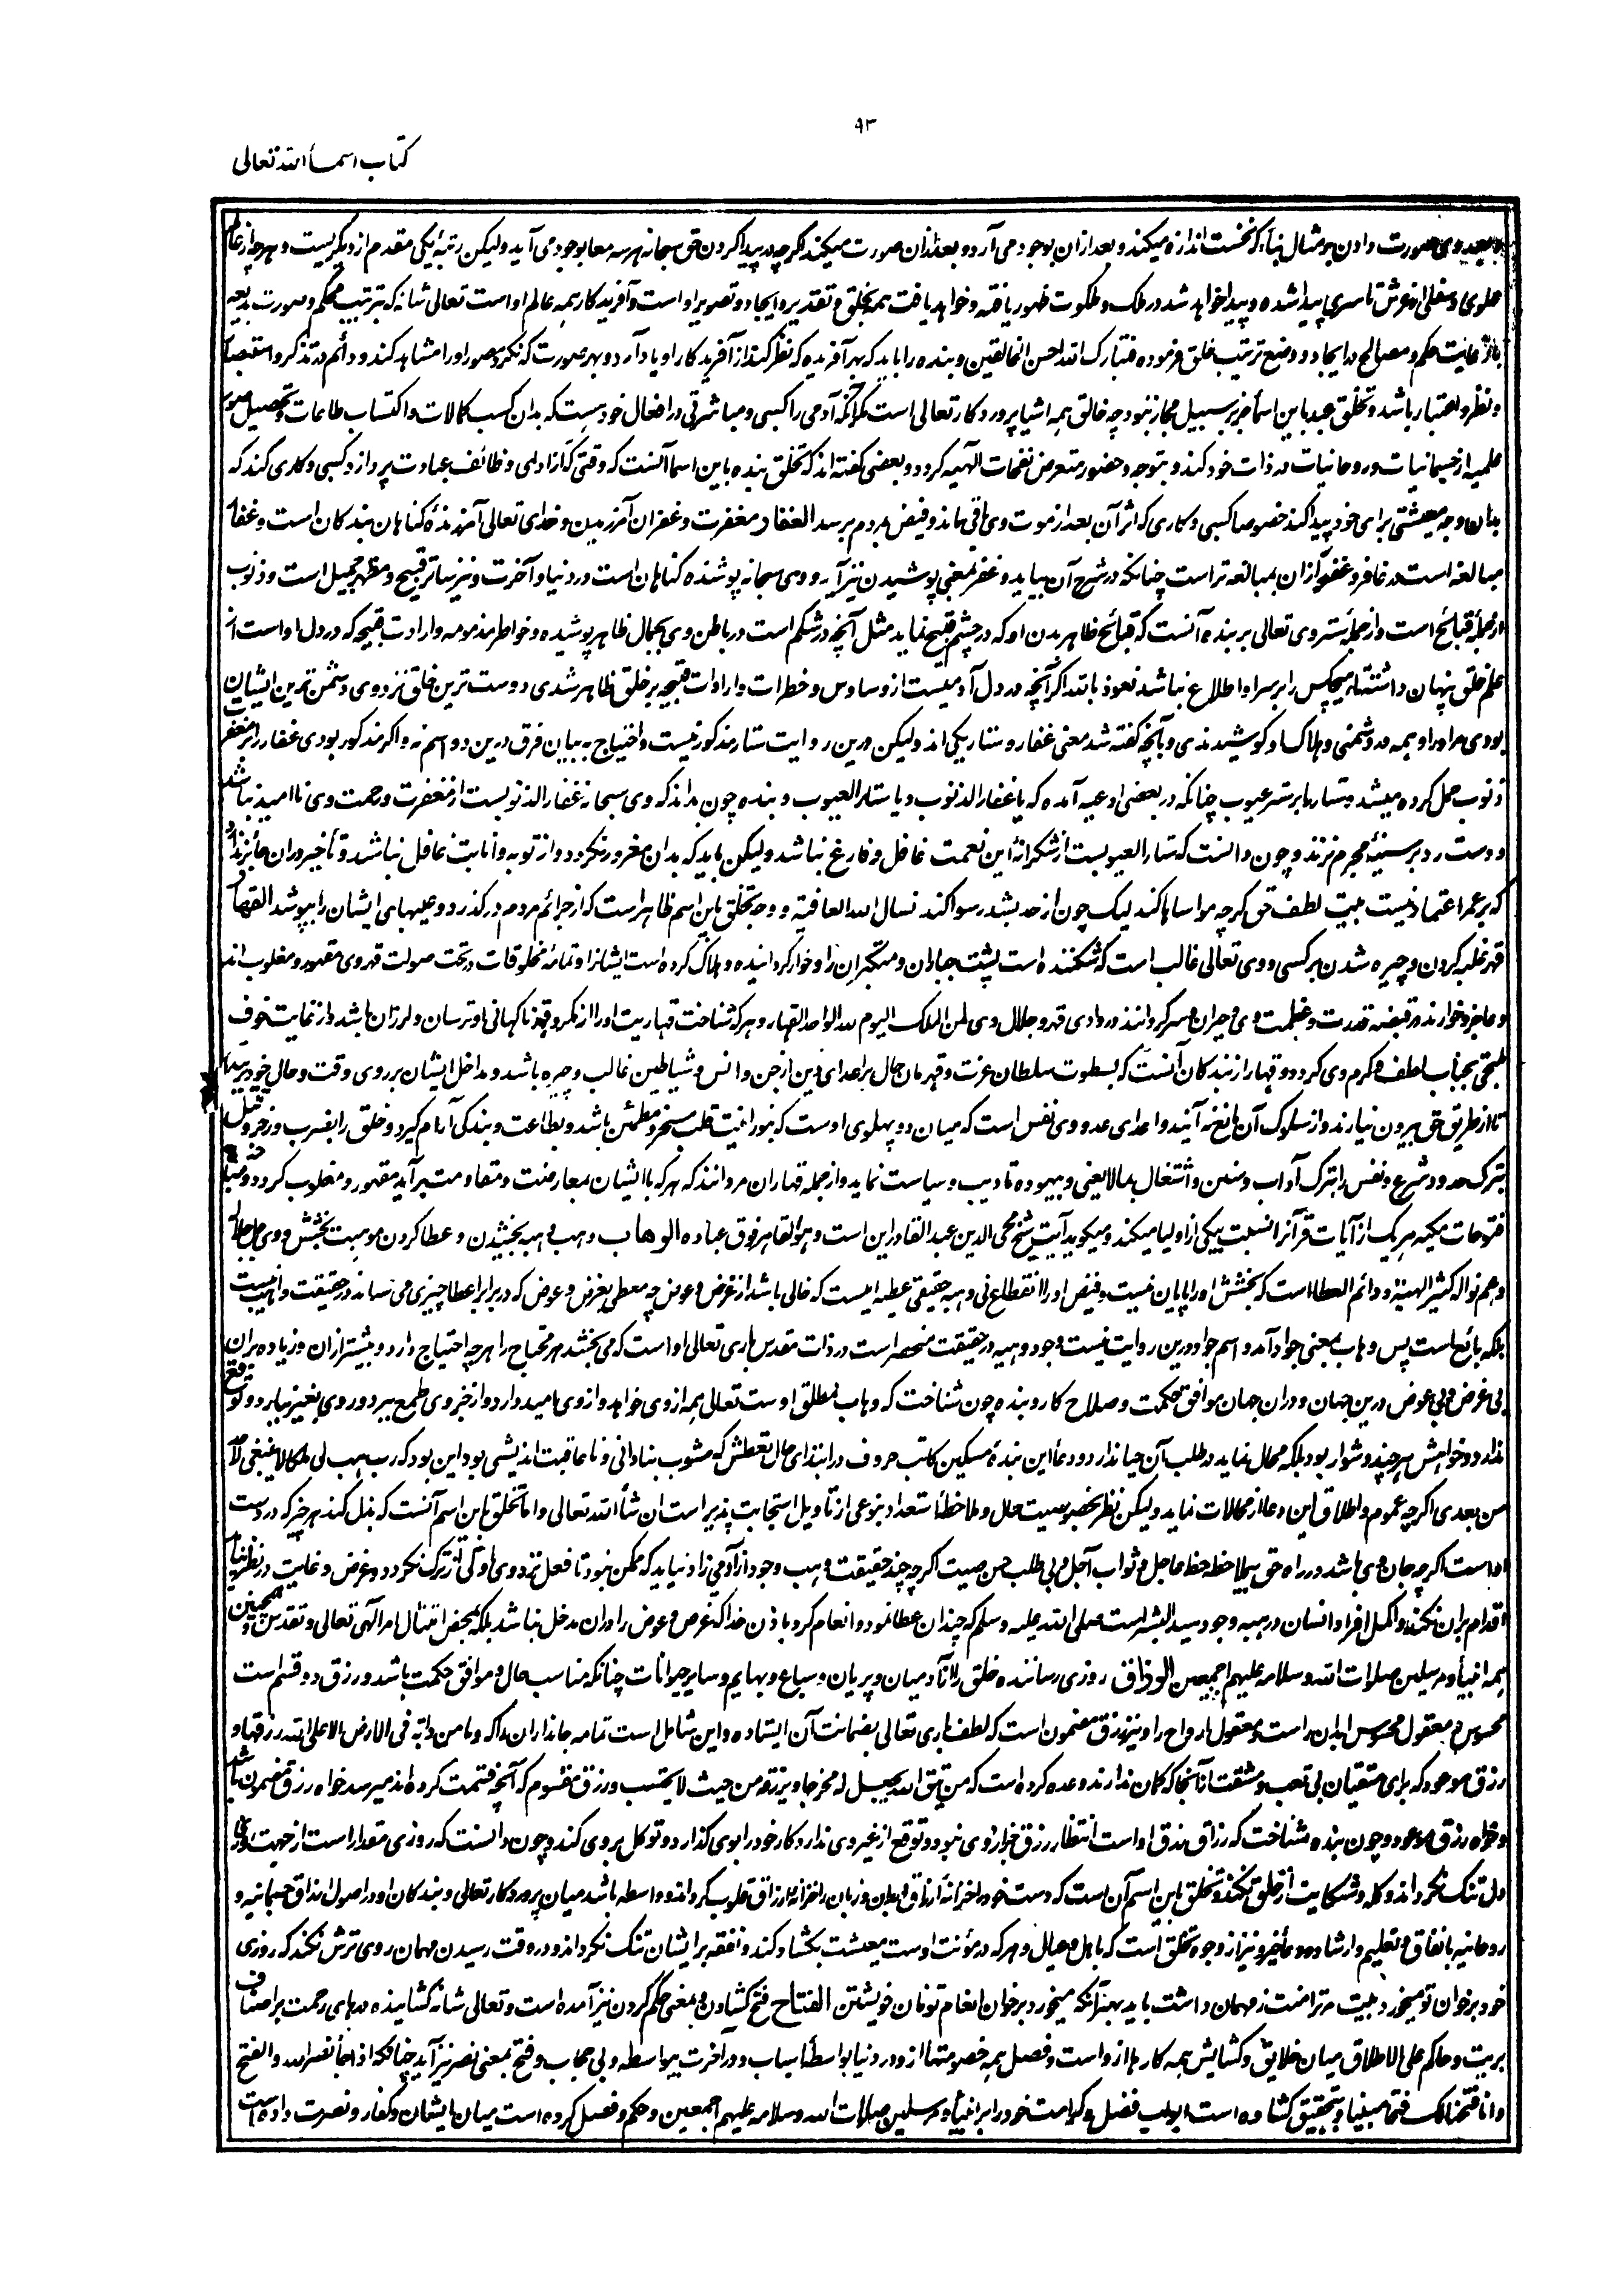 ۹۳
کتاب اسمأ الله تعالی
و بعد وی صورت دادن بر مثال بنا که نخست اندازه میکند و بعد ازان بوجود می آرد و بعد ازان صورت میکند اگرچه در پیدا کردن حق سبحانه هر سه معا بوجود می آید ولیکن رتبهٔ یکی مقدم از دیگریست و هر چه از عالم
علوی و سفلی از عرش تا سری پیدا شده و پیدا خواهد شد در ملک و ملکوت ظهور یافته و خواهد یافت همه بخلق و تقدیر و ایجاد و تصویر او است و آفریدکار همه عالم او است تعالی شانه که ترتیب محکم و صورت بدیعه
با رعایت حکم و مصالح در ایجاد و وضع ترتیب خلق فرموده فتبارک الله احسن الخالقین و بنده را باید که بهر آفریده که نظر کند از آفریدکار او یاد آرد و بهر صورت که نگرد مصور او را مشاهد کند و دائم در تذکر و استبصار
و نظر و اعتبار باشد و تخلق عبد باین اسمأ جز بر سبیل مجاز نبود چه خالق همه اشیا پروردکار تعالی است مگر آنکه آدمی را کسبی و مباشرتی در افعال خود هست که بدان کسب کمالات و اکتساب طاعات و تحصیل صور
علمیه از جسمانیات و روحانیات در ذات خود کند و بتوجه و حضور متعرض نفحات الهیه کردد و بعضی کفته اند که تخلق بنده باین اسما آنست که وقتی که از ادای وظائف عبادت پردازد کسبی و کاری کند که
بدان وجه معیشتی برای خود پیدا کند خصوصا کسبی و کاری که اثر آن بعد از موت وی باقی ماند و فیض بمردم برسد الغفار مغفرت و غفران آمرزیدن و خدای تعالی آمرزندهٔ کناهان بندکان است و غفار
مبالغه است در غافر و غفور ازان بمبالغه تر است چنانکه در شرح آن بیاید و غفر بمعنی پوشیدن نیز آید و وی سبحانه پوشنده کناهان است در دنیا و آخرت و نیز ساتر قبیح و مظهر جمیل است و ذنوب
از جملهٔ قبائح است و از جملهٔ ستر وی تعالی بر بنده آنست که قبائح ظاهر بدن او که در چشم قبیح نماید مثل آنچه در شکم است در باطن وی بجمال ظاهر پوشیده و خواطر مذمومه و ارادت قبیحه که در دل او است از
علم خلق پنهان داشته تا هیچکس را بر سر او اطلاع نباشد نعوذ بالله اگر آنچه در دل آدمیست از وساوس و خطرات و ارادات قبیحه بر خلق ظاهر شدی دوست ترین خلق نزد وی دشمن ترین ایشان
بودی مر او را و همه در دشمنی و هلاک او کوشیدندی و بآنچه کفته شد معنی غفار و ستار یکی اند ولیکن درین روایت ستار مذکور نیست و احتیاج به بیان فرق درین دو اسم نه و اگر مذکور بودی غفار را بر مغفرت
ذنوب حمل کرده میشد و ستار را بر ستر عیوب چنانکه در بعضی ادعیه آمده که یا غفار الذنوب و یا ستار العیوب و بنده چون داند که وی سبحانه غفار الذنوبست از مغفرت و رحمت وی ناامید نباشد
و دست رد بر سینهٔ مجرم نزند و چون دانست که ستار العیوبست از شکرانهٔ این نعمت غافل و فارغ نباشد ولیکن باید که بدان مغرور نگردد و از توبه و انابت غافل نباشد و تأخیر دران جائز ندارد
که بر عمر اعتماد نیست بیت لطف حق گرچه مواساها کند لیک چون از حد بشد رسوا کند نسال الله العافیة و وجه تخلق باین اسم ظاهر است که از جرائم مردم درگذرد و عیبهای ایشان را بپوشد القهار
قهر غلبه کردن و چیره شدن بر کسی و وی تعالی غالب است که شکننده است پشت جباران و متکبران را و خوار کرداننده و هلاک کرده است ایشانرا و تمامهٔ مخلوقات در تحت صولت قهر وی مقهور و مغلوب اند
و عاجز و خوارند در قبضه قدرت و عظمت وی و حیران و سرگردانند در وادی قهر و جلال وی لمن الملک الیوم لله الواحد القهار و هر که شناخت قهاریت او را از مکر و قهر ناکهانی او ترسان و لرزان باشد و از نمایت خوف
ملتجی بجناب لطف و کرم وی کردد و قهار از بندکان آنست که بسطوت سلطان عزت و قهرمان جمال بر اعدای دین از جن و انس و شیاطین غالب و چیره باشد و مداخل ایشان بر روی وقت و حال خود ببندد
تا از طریق حق بیرون نیارند و از سلوک آن مانع نه آیند و اعدای عدو وی نفس است که میان دو پهلوی اوست که بنورانیت قلب مسخر و مطمئن باشد و بطاعت و بندکی آرام کیرد و خلق را بضرب و زجر و قتل
بترک حدود شرع و نفس را بترک آداب و سنن و اشتغال بمالایعنی و بیهوده تادیب و سیاست نماید و از جمله قهاران مردانند که هر که با ایشان بمعارضت و مقاومت برآید مقهور و مغلوب کردد و صاحب
فتوحات مکیه هر یک از آیات قرآنرا نسبت بیکی از اولیا میکند و میکوید آیت شیخ محی الدین عبد القادر این است و هو القاهر فوق عباده الوهاب وهب و هبه بخشیدن و عطا کردن موهبت بخشش و وی جل جلاله
و عم نواله کثیر الهبة و دائم العطا است که بخشش او را پایان نیست و فیض او را انقطاع نی و هبه حقیقی عطیه ایست که خالی باشد از غرض و عوض چه معطی بغرض و عوض که در برابر عطا چیزی می ستاند در حقیقت واهب نیست
بلکه بائع است پس وهاب بمعنی جواد آمد و اسم جواد درین روایت نیست و جود و هبه در حقیقت منحصر است در ذات مقدس باری تعالی او است که می بخشد هر محتاج را هر چه احتیاج دارد و بیشتر ازان و زیاده بران
بی غرض و بی عوض درین جهان و دران جهان موافق حکمت و صلاح کار و بنده چون شناخت که وهاب مطلق اوست تعالی همه از وی خواهد و از وی امیدوارد و از غیر وی طمع ببرد و روی بغیر نیارد و توقع
ندارد و خواهش هر چند دشوار بود بلکه محال نماید در طلب آن حیا ندارد و دعأ این بندهٔ مسکین کاتب حروف در ابتدای حال تعطش که مشوب بنادانی و ناعاقبت اندیشی بود این بود که رب هب لی ملکا لا ینبغی لاحد
من بعدی اگرچه عموم و اطلاق این دعا از محالات نماید ولیکن نظر بخصوصیت حال و ملاحظهٔ استعداد بنوعی از تاویل استجابت پذیر است ان شأ الله تعالی و اما تخلق باین اسم آنست که بذل کند هر چیز که در دست
اوست اگرچه جان وی باشد در راه حق بیملاحظه حظ عاجل و ثواب آجل و بی طلب حسن صیت اگرچه چند حقیقت وهب و جود از آدمی زاد نیاید که ممکن نبود تا فعل نزد وی اولی از ترک نگردد و غرض و غایت در نظر نیاید
اقدام بران نکند و اکمل افراد انسان در هبه و جود سید البشر است صلی الله علیه وسلم که چندان عطا نمود و انعام کرد باذن خدا که غرض و عوض را دران مدخل نباشد بلکه بمحض امتثال امر الهی تعالی و تقدس و همچنین
همه انبیأ و مرسلین صلوات الله و سلامه علیهم اجمعین الرزاق روزی رساننده خلق را از آدمیان و پریان و سباع و بهایم و سایر حیوانات چنانکه مناسب حال و موافق حکمت باشد و رزق دو قسم است
محسوس و معقول محسوس ابدان راست و معقول ارواح را و نیز رزق مضمون است که لطف باری تعالی بضمانت آن ایستاده و این شامل است تمامه جانداران را که وما من دابة فی الارض الا علی الله رزقها و
رزق موعود که برای متقیان بی تعب و مشقت از آنجا که کمان ندارند وعده کرده است که من یتق الله یجعل له مخرجا و یرزقه من حیث لا یحتسب و رزق مقسوم که آنچه قسمت کرده اند میرسد خواه رزق مضمون باشد
و خواه رزق موعود و چون بنده شناخت که رزاق مرزق او است انتظار رزق جز از وی نبود و توقع از غیر وی ندارد کار خود را بوی گذارد و توکل بر وی کند و چون دانست که روزی مقدار است از جهت
دل تنگ نگرداند و گله و شکایت از خلق نکند و تخلق باین اسم آن است که دست خود را خزانهٔ ارزاق ابدان و زبان را خزانهٔ ارزاق قلوب کرداند و واسطه باشد میان پروردکار تعالی و بندکان او در اصول ارزاق جسمانیه و
روحانیه بانفاق و تعلیم و ارشاد و دعأ خیر و نیز از وجوه تخلق است که باهل و عیال و هر که در مؤنت اوست معیشت بکشاد کند و نفقه بر ایشان تنگ نگرداند و در وقت رسیدن مهمان روی ترش نکند که روزی
خود بر خوان تو میخورد بیت مر ترا منت ز مهمان داشت باید بهر آنکه میخورد بر خوان انعام تو نان خویشتن الفتاح فتح کشادن و بمعنی حکم کردن نیز آمده است و تعالی شانه کشاینده درهای رحمت بر اصناف
بریت و حاکم علی الاطلاق میان خلایق و کشایش همه کارها از او است و فصل همه خصومتها از و در دنیا بواسطهٔ اسباب و در آخرت بیواسطه و بی حجاب و فتح بمعنی نصر نیز آید چنانکه اذا جأ نصر الله والفتح
و انا فتحنا لک فتحا مبینا و بتحقیق کشاده است ابواب فضل و کرامت خود را بر انبیأ و مرسلین صلوات الله و سلامه علیهم اجمعین و حکم و فصل کرده است میان ایشان و کفار و نصرت داده است